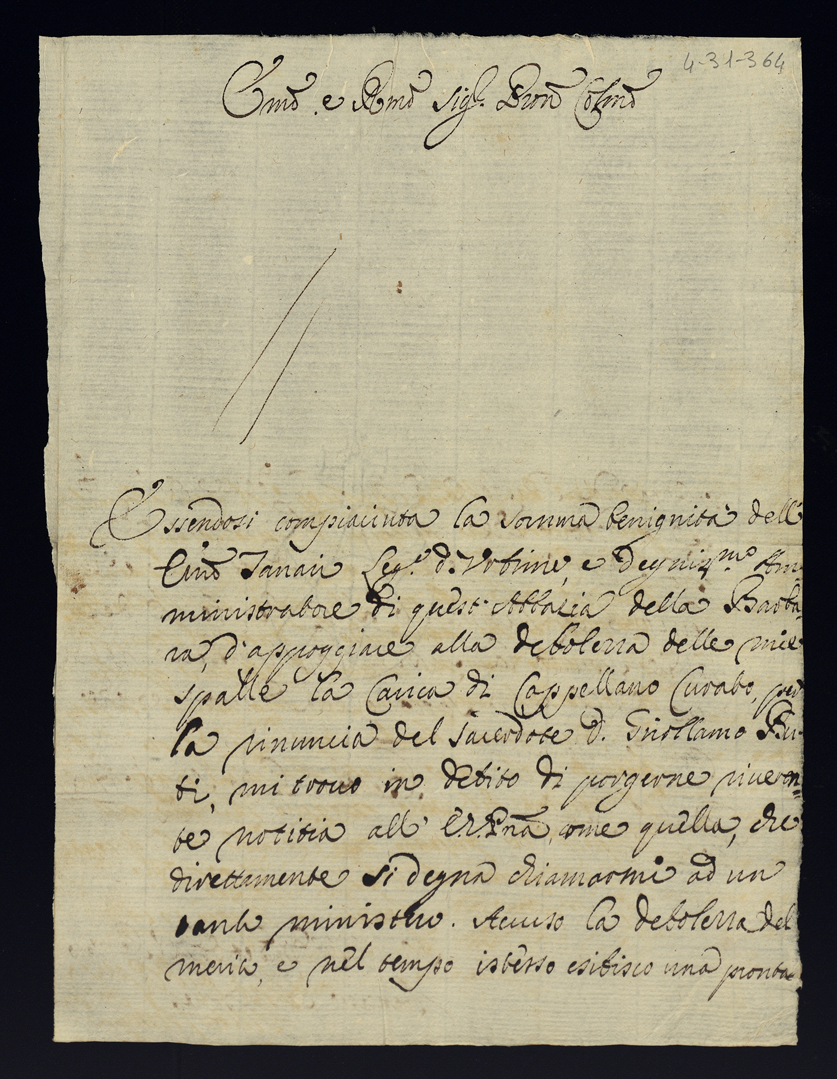 4-31-364
Emõ. e Rmõ Sigr. Pron Colmõ
Essendosi compiaciuta la somma benignità dell'
Emõ Tanari Legto. d'Urbino, e degnismo Am
ministratore di quest'Abbazia della Barba
ra, d'appoggiare alla debolezza delle mie
spalle la Carica di Cappellano Curato, per
la rinuncia del Sacerdote D. Girollamo Bu-
ti, mi trovo in debito di porgerne riveren=
te notitia all' come quella, che
direttamente si degna chiamarmi ad un
tanto ministero. Accuso la debolezza del
merito, e nel tempo istesso esibisco una pronta